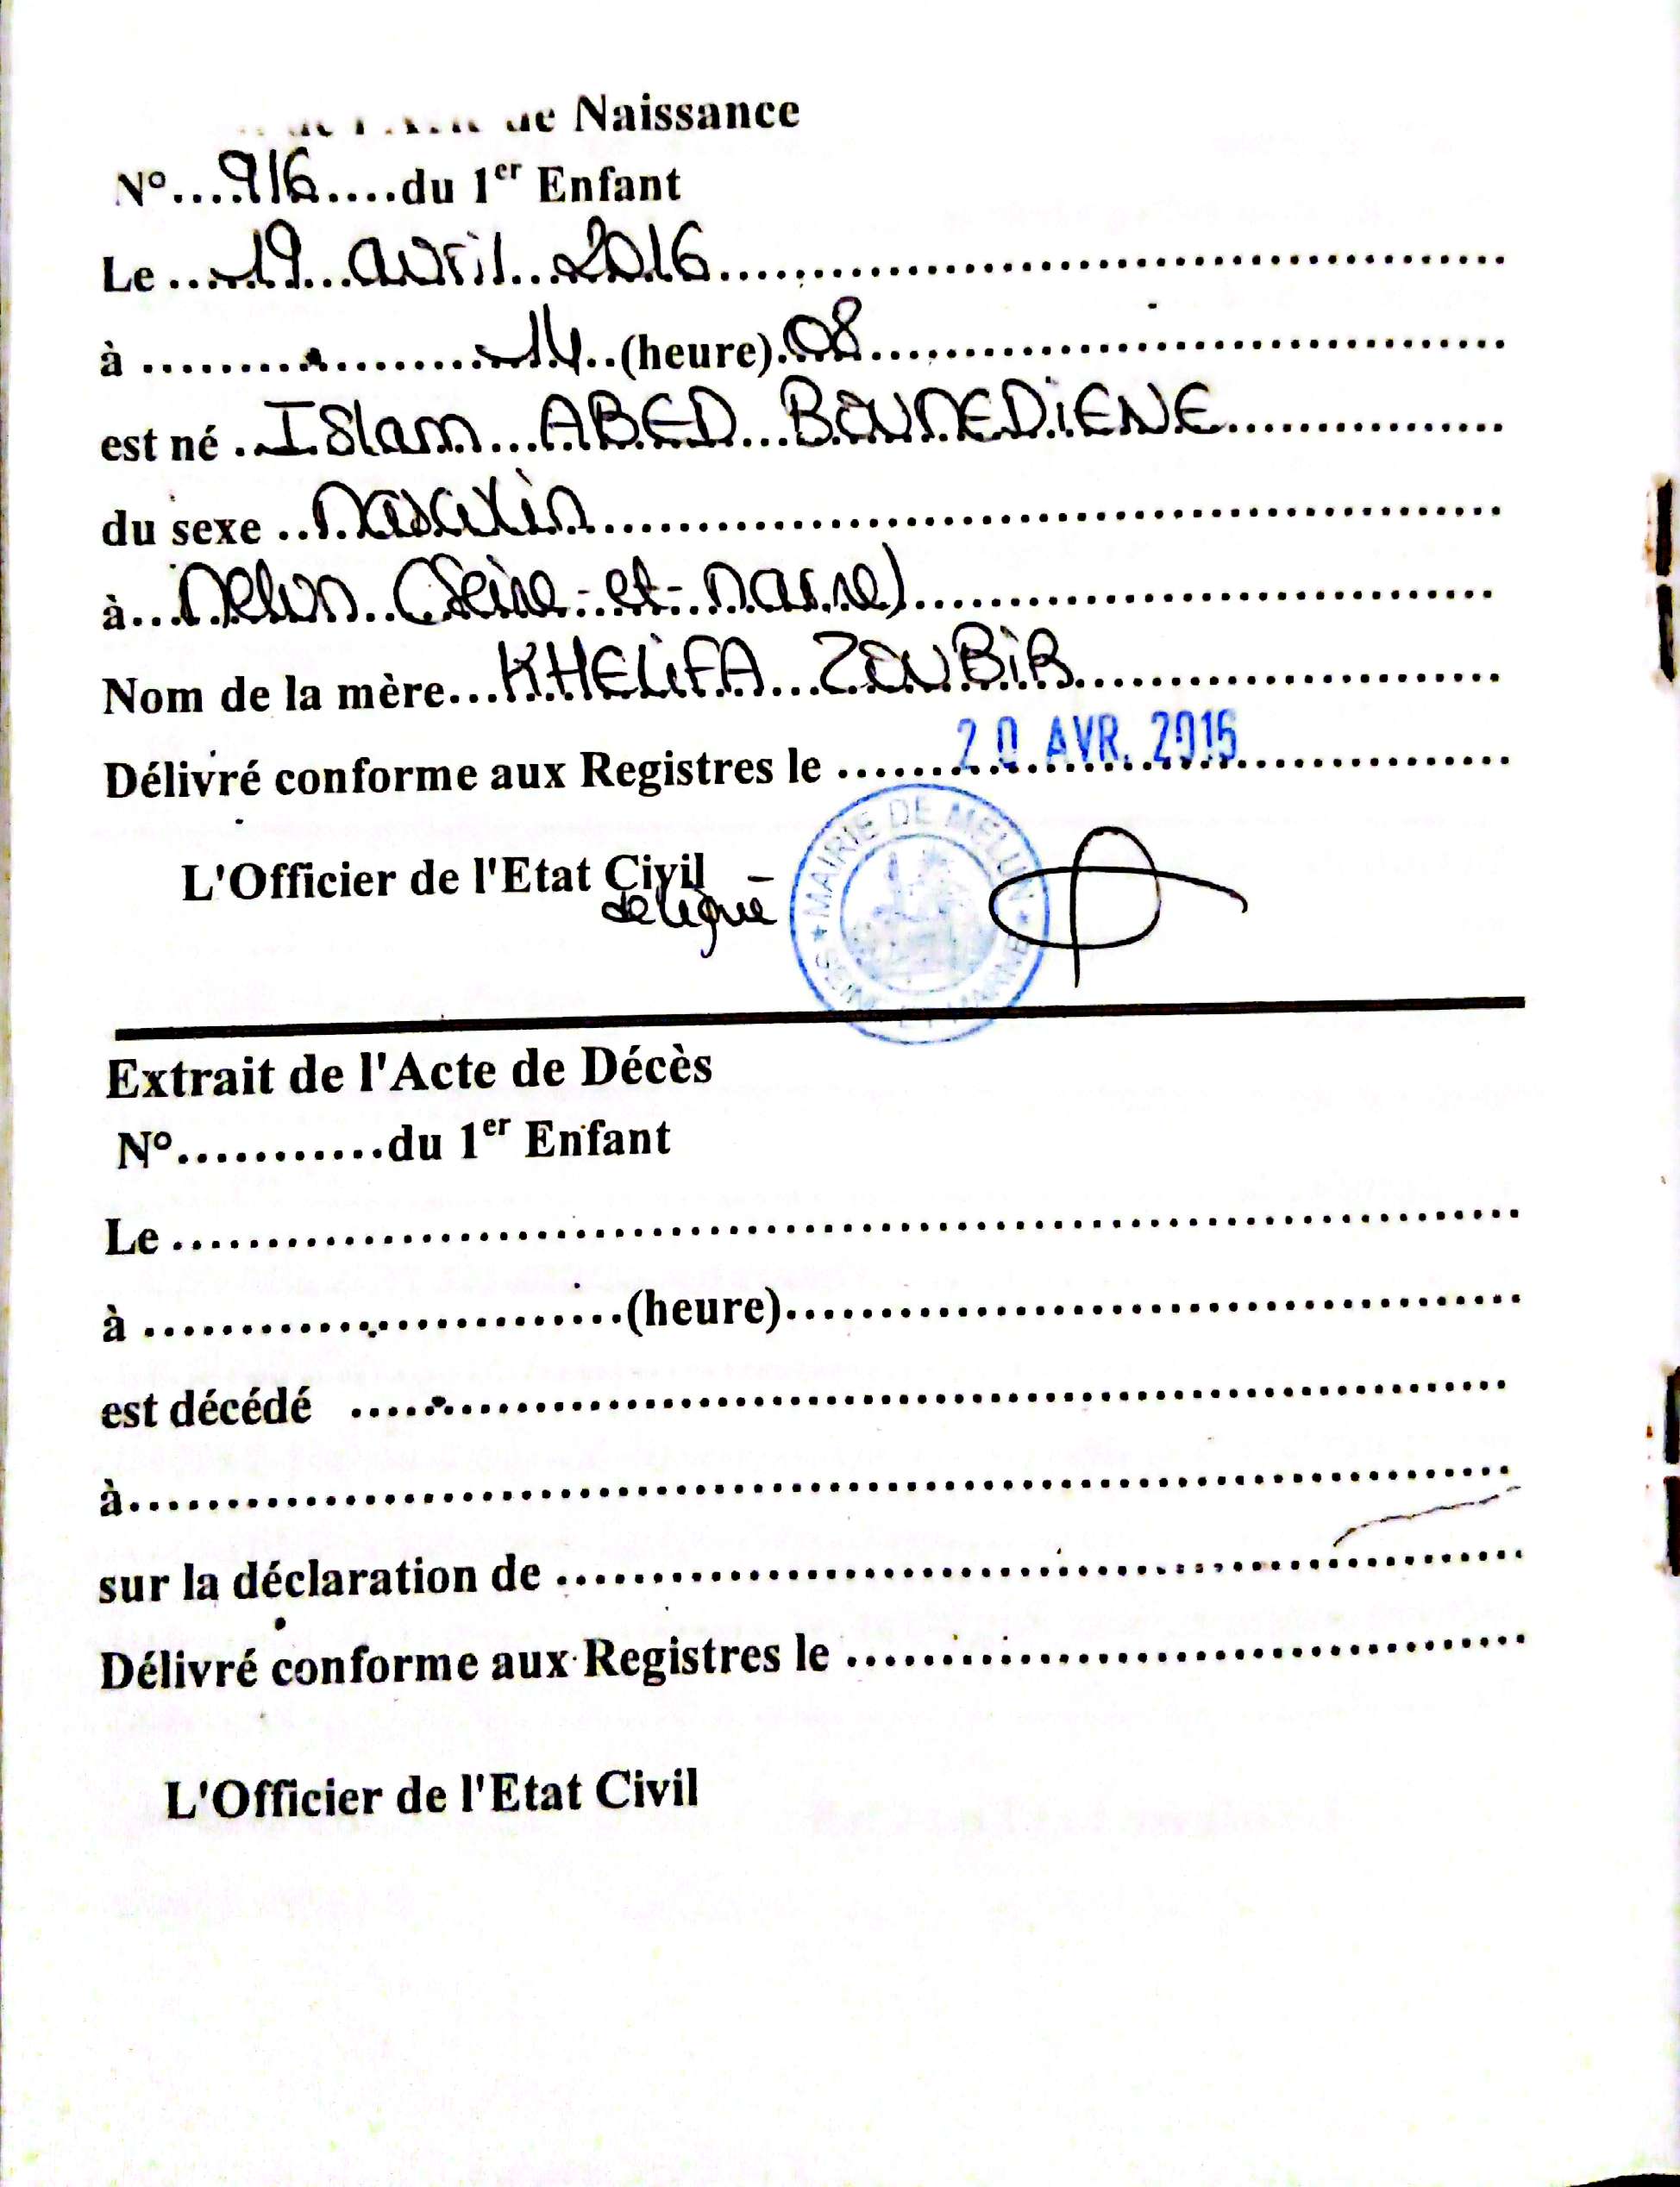 de Naissance
N°....916....du 1er Enfant
Le ....19...avril...2016
à ....14..(heure).08
est né ..Islam...ABED...BOUMEDiENE
du sexe ..Masculin
à...Melun..(Seine-et-Marne)
Nom de la mère...KHELiFA...ZOUBiR
Délivré conforme aux Registres le ....20 AVR. 2016
L'Officier de l'Etat Civil
délégué
★ MAIRIE DE MELUN ★
SEINE ET MARNE
Extrait de l'Acte de Décès
N°...........du 1er Enfant
Le ....
à ....(heure)....
est décédé ....
à....
sur la déclaration de ....
Délivré conforme aux Registres le ....
L'Officier de l'Etat Civil